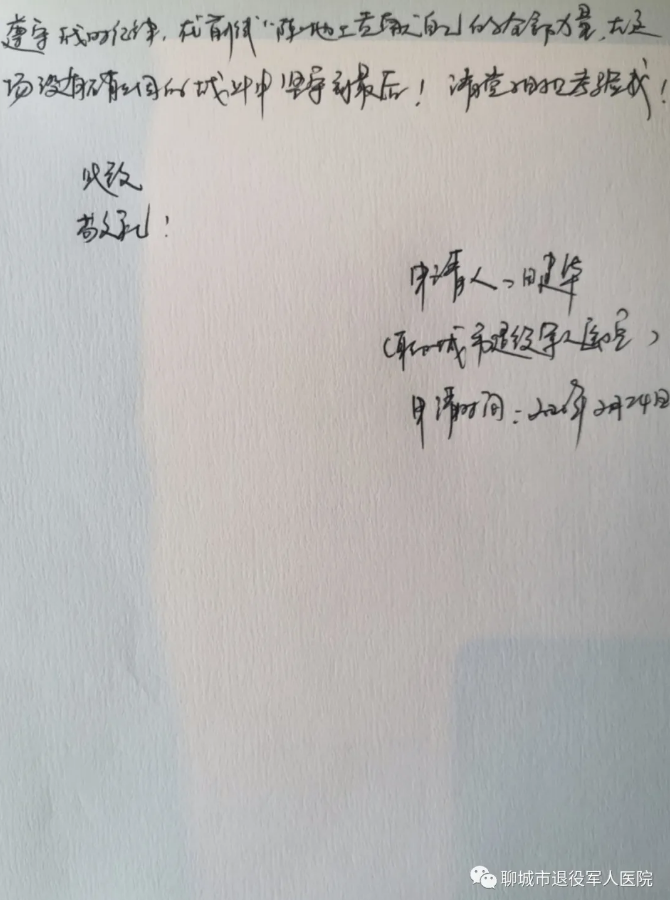 遵守战时纪律，在前线“阵地上贡献自己的全部力量，在这
场没有硝烟的战斗中坚守到最后！请党组织考验我！
此致
敬礼！
申请人：田建华
（聊城市退役军人医院）
申请时间：2020年2月24日
聊城市退役军人医院